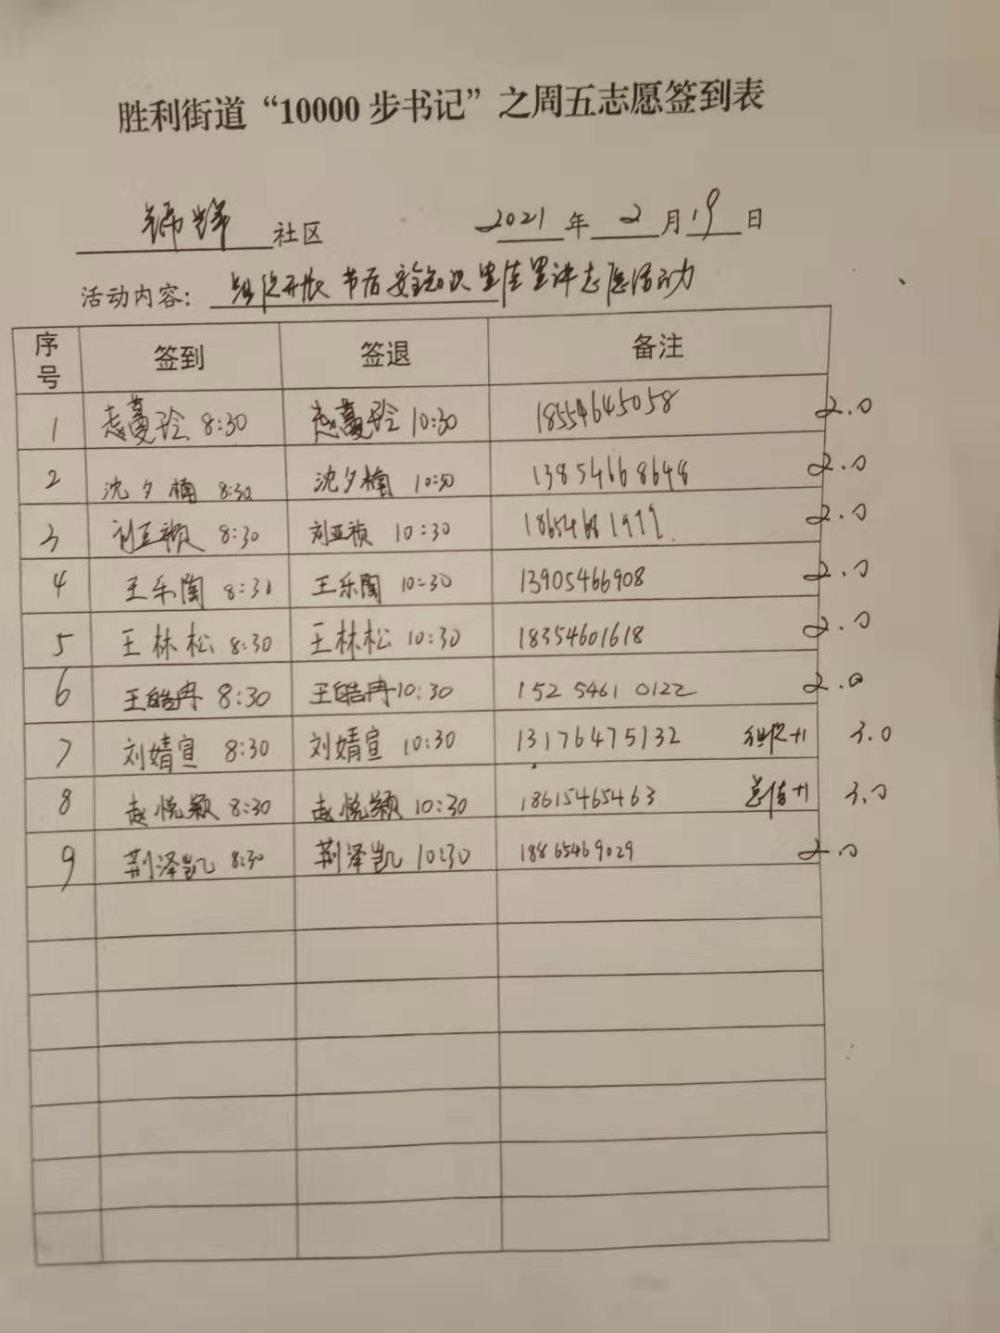 胜利街道“10000步书记”之周五志愿签到表
锦华社区 2021年2月19日
活动内容：组织开展节后安全知识 志愿活动
序号 签到 签退 备注
1 赵蔓玲 8:30 赵蔓玲 10:30 18554645058 2.0
2 沈夕楠 8:30 沈夕楠 10:30 13854668648 2.0
3 刘亚祯 8:30 刘亚祯 10:30 2.0
4 王乐陶 8:30 王乐陶 10:30 13905466908 2.0
5 王林松 8:30 王林松 10:30 18354601618 2.0
6 王皓冉 8:30 王皓冉 10:30 152 5461 0122 2.0
7 刘婧宣 8:30 刘婧宣 10:30 13176475132 +1 3.0
8 赵悦颖 8:30 赵悦颖 10:30 18615465463 总结+1 3.0
9 荆泽凯 8:30 荆泽凯 10:30 18865469029 2.0